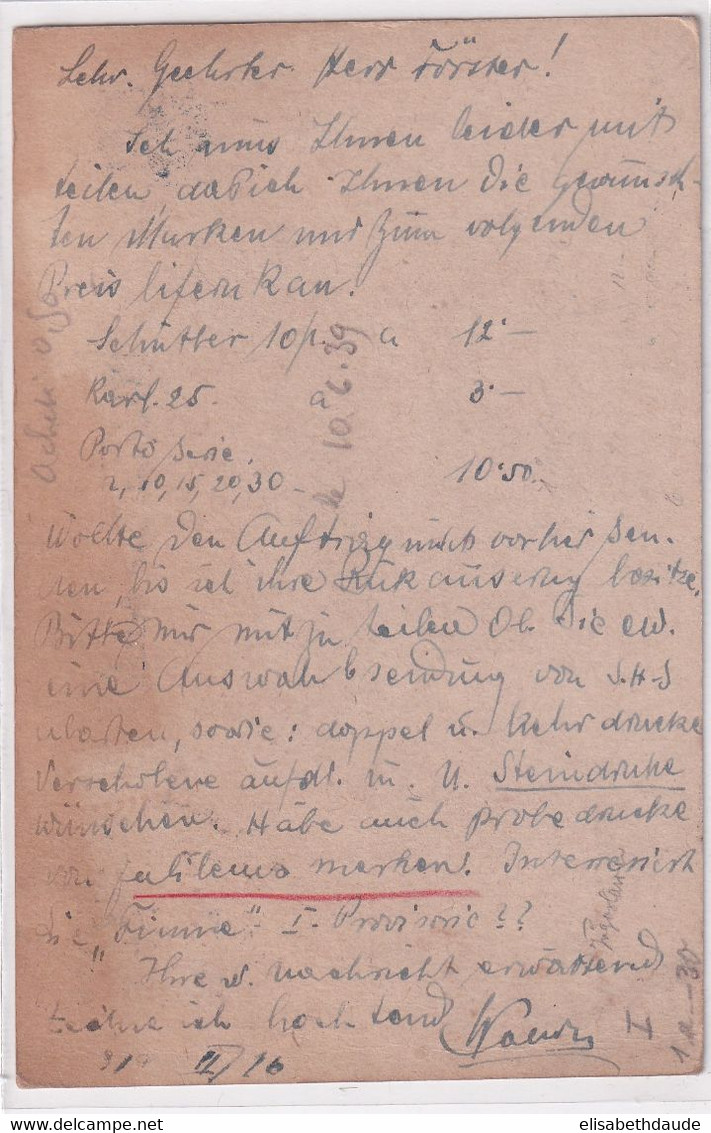 Sehr. Geehrter Herr Förster!
Ich mus Ihnen leider mit
teilen, das ich Ihnen die gewünsch-
ten Marken nur zum volgenden
Preis lifern kan.
Schütter 10/. a 12·—
Karl. 25. a 3·—
Porto Serie.
2, 10, 15, 20, 30 — 10·50.—
Wollte den Auftrag nich vorher sen-
den, bis ich ihre Rük auserung besitze.
Bitte mir mit zu teilen Ob. Sie ew.
eine Auswahlsendung von S.H.S
sowie: doppel u. Kehr drucke
Verschobene aufdr. u. U. Steindruke
wünschen. Habe auch probe drucke
von marken. Interresirt
Sie „Fiume" I. Provisorie??
Ihre w. nachricht erwartend
zeichne ich hochtend
II/16
Acheté 0,50
le 10.6.39
Yugoslavie
I
30
elisabethdaude